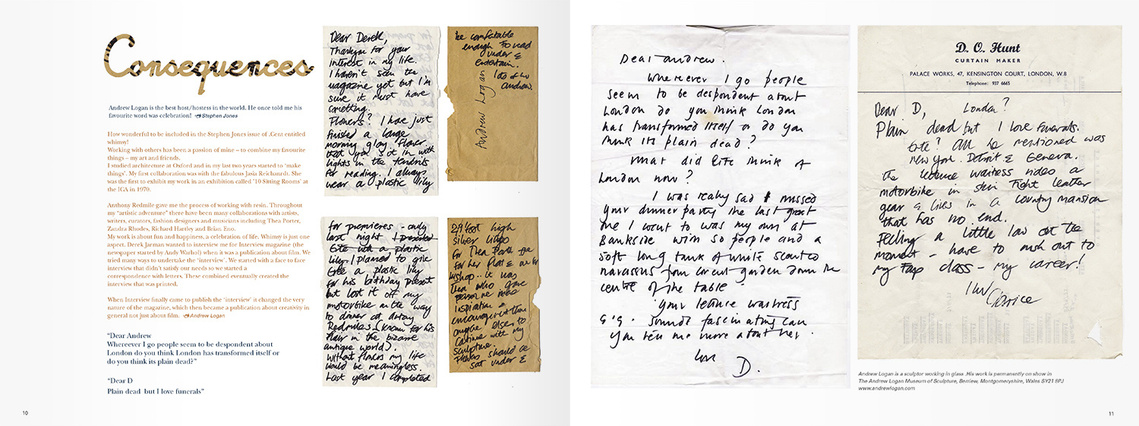 Consequences
Andrew Logan is the best host/hostess in the world. He once told me his
favourite word was celebration! Stephen Jones
How wonderful to be included in the Stephen Jones issue of .Cent entitled
whimsy!
Working with others has been a passion of mine – to combine my favourite
things – my art and friends.
I studied architecture at Oxford and in my last two years started to 'make
things'. My first collaboration was with the fabulous Jasia Reichardt. She
was the first to exhibit my work in an exhibition called '10 Sitting Rooms' at
the ICA in 1970.
Anthony Redmile gave me the process of working with resin. Throughout
my "artistic adventure" there have been many collaborations with artists,
writers, curators, fashion designers and musicians including Thea Porter,
Zandra Rhodes, Richard Hartley and Brian Eno.
My work is about fun and happiness, a celebration of life. Whimsy is just one
aspect. Derek Jarman wanted to interview me for Interview magazine (the
newspaper started by Andy Warhol) when it was a publication about film. We
tried many ways to undertake the 'interview'. We started with a face to face
interview that didn't satisfy our needs so we started a
correspondence with letters. These combined eventually created the
interview that was printed.
When Interview finally came to publish the 'interview' it changed the very
nature of the magazine, which then became a publication about creativity in
general not just about film. Andrew Logan
"Dear Andrew
Whereever I go people seem to be despondent about
London do you think London has transformed itself or
do you think its plain dead?"
"Dear D
Plain dead but I love funerals"
10
Dear Derek,
Thankyou for your
interest in my life.
I haven't seen the
magazine yet but I'm
sure it must have
something.
Flowers? I have just
finished a large
morning glory flower
that you sit in with
lights in the tendrils
for reading. I always
wear a plastic lily
be comfortable
enough to read
under &
entertain.
lots of love
andrew
Andrew Logan
for premieres - only
last night I
lily. I planned to give
a plastic lily
for his birthday present
but lost it off my
motorbike on the way
to dinner at Antony
Redmiles (known for his
flair in the bizarre
antique world)
Without flowers my life
would be meaningless.
Last year I completed
29 foot high
silver lilys
for Thea Porter for
her
shop. It was
Thea who gave
me more
inspiration &
encouragement than
anyone else to
continue with my
sculpture.
should be
sat under &
Dear andrew.
Wherever I go people
seem to be despondent about
London do you think London
has transformed itself or do you
think its plain dead?
What did think of
London now?
I was really sad I missed
your dinner party the last great
one I went to was my own at
Bankside with 50 people and a
soft long tank of white scented
narcissus from covent garden down the
centre of the table.
Your leisure waitress
G.G. sounds fascinating can
you tell me more about her
love
D.
D. O. Hunt
CURTAIN MAKER
PALACE WORKS, 47, KENSINGTON COURT, LONDON, W.8
Telephone: 937 6665
Dear D, London?
Plain dead but I love funerals.
All he mentioned was
new york. Detroit & Geneva.
the leisure waitress rides a
motorbike in skin tight leather
gear & lives in a country mansion
that has no end.
Feeling a little low at the
moment - have to rush out to
my tap class - my career!
luv
Andrew Logan is a sculptor working in glass. His work is permanently on show in
The Andrew Logan Museum of Sculpture, Berriew, Montgomeryshire, Wales SY21 8PJ
www.andrewlogan.com
11